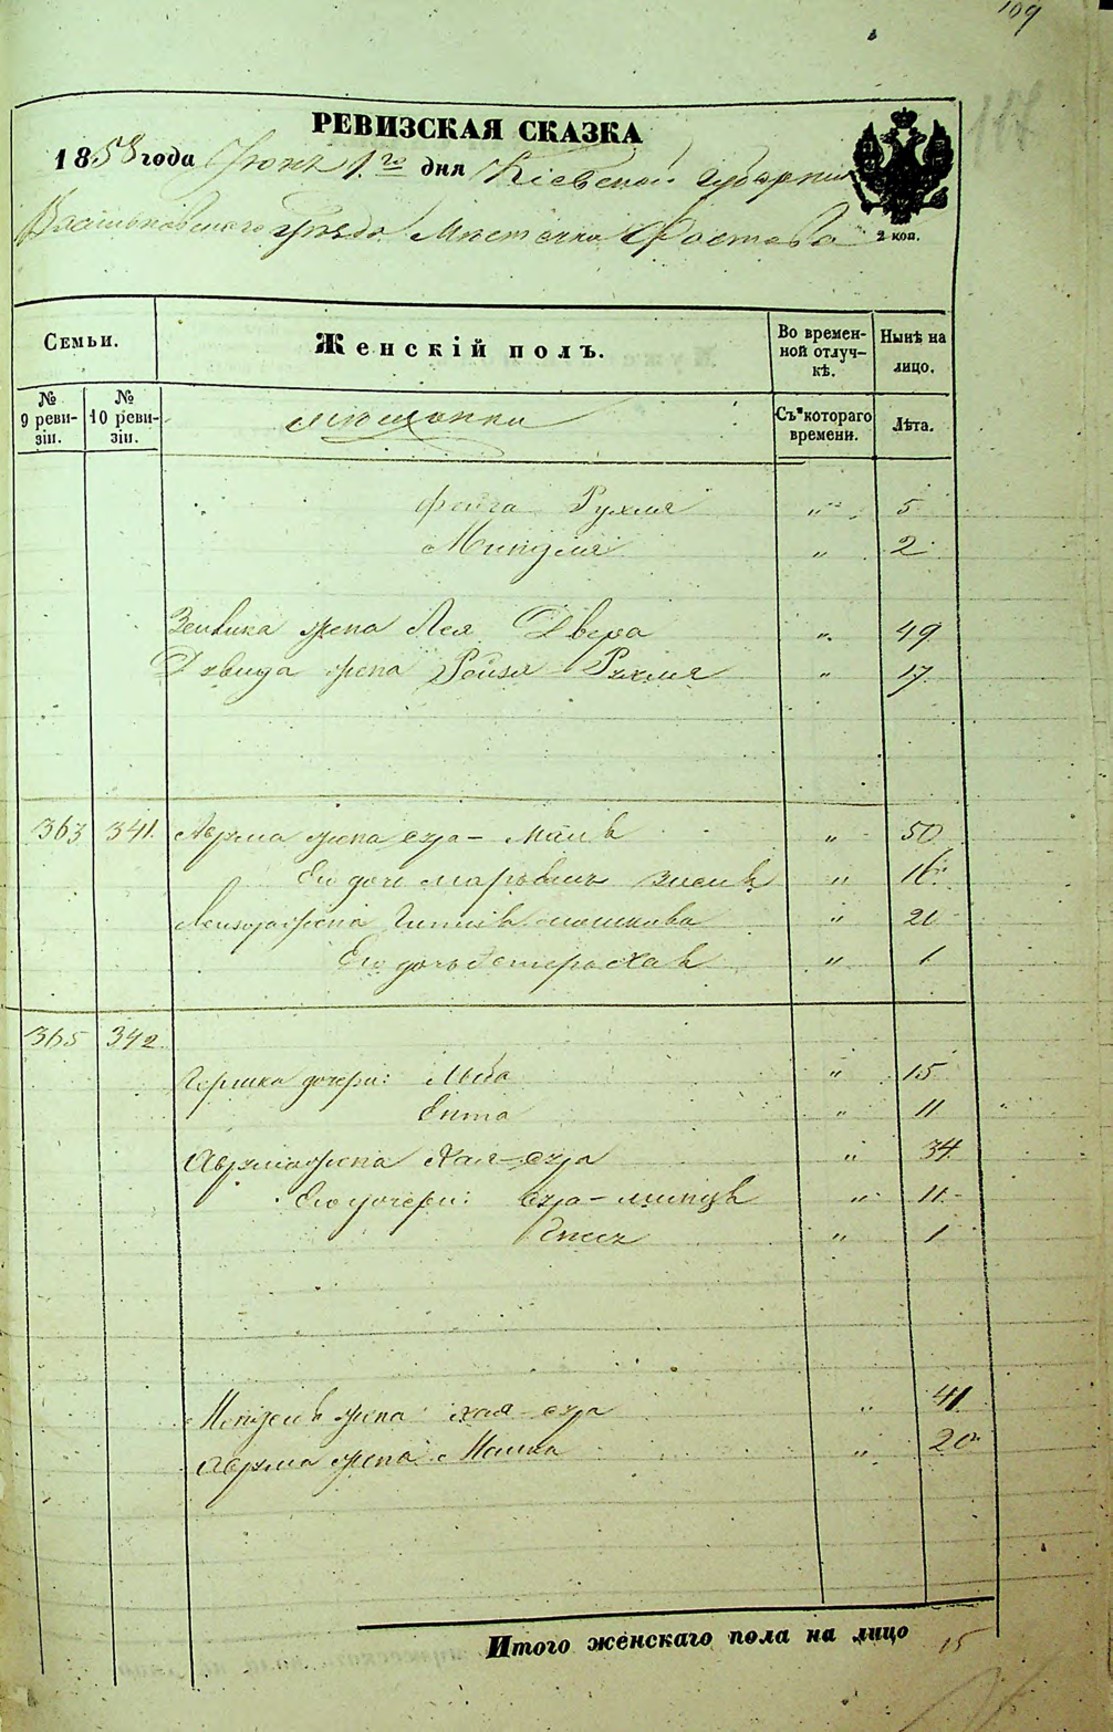 109
РЕВИЗСКАЯ СКАЗКА
1858 года Июня 1го дня Кіевской Губерніи
Васильковского Уезда Местечка Фастова
2 коп.
Семьи. Женскій полъ. Во времен-ной отлуч-кѣ. Нынѣ на лицо.
№ 9 реви-зіи. № 10 реви-зіи. мещанки Съ котораго времени. Лѣта.
Фейга Рухля " 5
" 2
Зейлика жена Лея Двера " 49
Давида жена Рейзя Рухля " 17
363 341. Аврума жена Сура - " 50
Его дочь " 16
жена " 20
Его дочь " 1
365 342
Гершка дочери: " 15
Ента " 11
Аврума жена Хая-Сура " 34
Его дочери: Сура- " 11
" 1
жена Хая Сура " 41
Аврума жена " 20
Итого женскаго пола на лицо 15